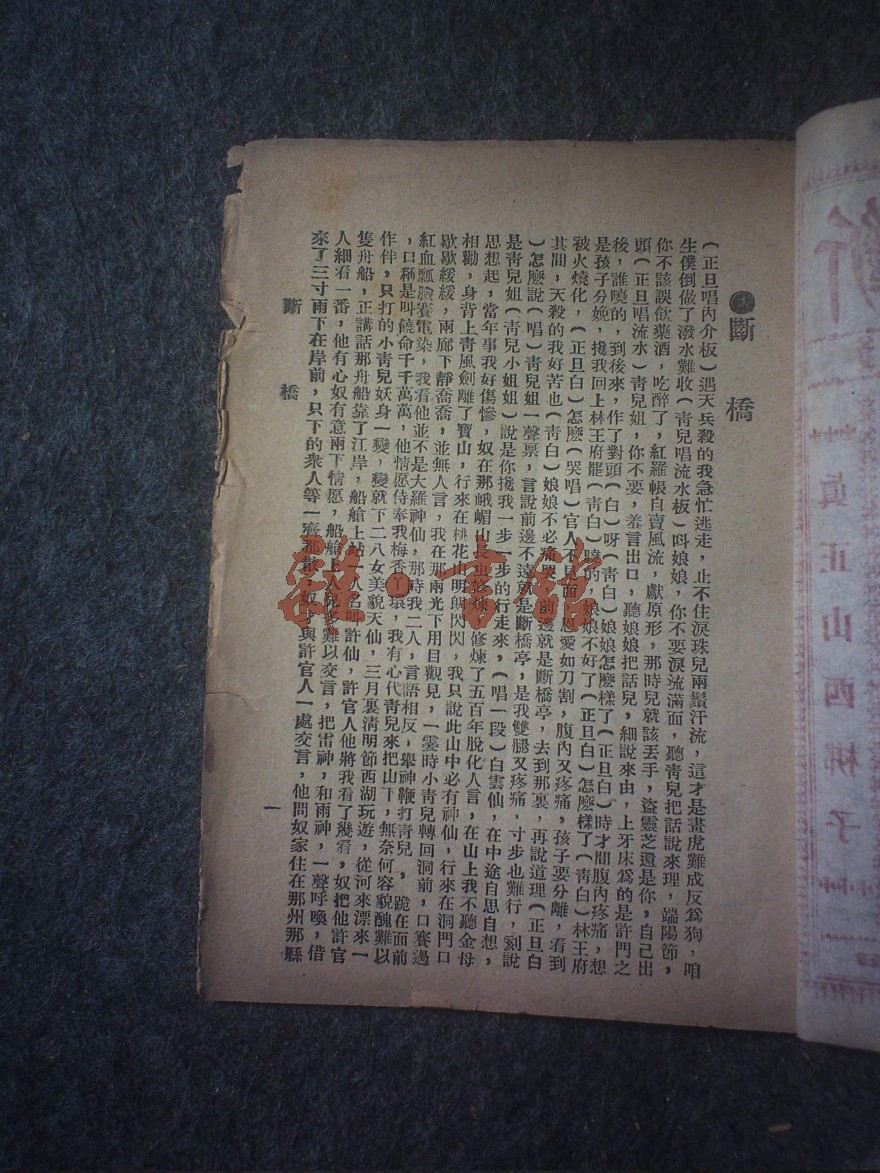 斷橋
(正旦唱內介板)遇天兵殺的我急忙逃走，止不住淚珠兒兩鬢汗流，這才是畫虎難成反為狗，咱
生僕倒做了潑水難收(靑兒唱流水板)呌娘娘，你不要淚流滿面，聽靑兒把話說來理，端陽節，
你不該誤飲藥酒，吃醉了，紅羅帳自賣風流，獻原形，那時兒就該丟手，盜靈芝還是你，自已出
頭(正旦唱流水)靑兒姐，你不要，羞言出口，聽娘娘把話兒，細說來由，上牙床為的是許門之
後，誰曉的，到後來，作了對頭(白)呀(靑白)娘娘怎麽樣了(正旦白)時才間腹內疼痛，想
是孩子分娩，攙我回上林王府罷(靑白)曉的，娘娘不好了(正旦白)怎麽樣了(靑白)林王府
被火燒化，(正旦白)怎麽(哭唱)官人不見面，恩愛如刀割，腹內又疼痛，孩子要分離，看到
其間，天殺的我好苦也(靑白)娘娘不必痛哭，前邊就是斷橋亭，去到那裏，再說道理(正旦白
)怎麽說(唱)靑兒姐一聲禀，言說前邊不遠就是斷橋亭，是我雙腿又疼痛，寸步也難行，刻說
是靑兒姐(靑兒小姐姐)說是你攙我一步一步的行走來，(唱一段)白雲仙，在中途自思自想，
思想起，當年事我好傷慘，奴在那峨嵋山長修煉，修煉了五百年脫化人言，在山上我不聽金母
相勸，身背上靑風劍離了寶山，行來在桃花山明朗閃閃，我只說此山中必有神仙，行來在洞門口
歇歇緩緩，兩廊下靜喬喬，並無人言，我在那兩光下用目觀見，一霎時小靑兒轉回洞前，口賽過
紅血瓢臉賽電染，我看他並不是大羅神仙，那時我二人，言語相反，舉神鞭打靑兒，跪在面前
，口稱是叫饒命千千萬萬，他情愿侍奉我梅香丫環，我有心代靑兒來把山下，無奈何容貌醜難以
作伴，只打的小靑兒妖身一變，變就下二八女美貌天仙，三月裏清明節西湖玩遊，從河來漂來一
隻舟船，正講話那舟船靠了江岸，船艙上站一人名叫許仙，許官人他將我看了幾看，奴把他許官
人細看一番，他有心奴有意兩下情愿，船艙上人兒多難以交言，把雷神，和雨神，一聲呼喚，借
來了三寸雨下在岸前，只下的衆人等一齊都散，奴才與許官人一處交言，他問奴家住在那州那縣
斷橋
一
雜·書館
眞正山西梆子